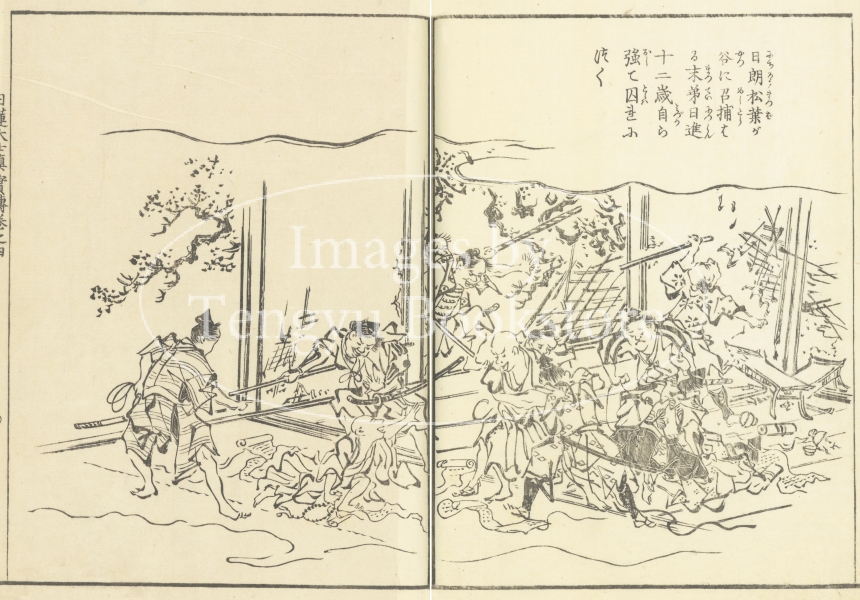 日朗松葉が
谷に召捕も
る末弟日進
十二歳自ら
強て囚れに
つく
日蓮大士真実傳巻之四
Images by
Tengyu Bookstore